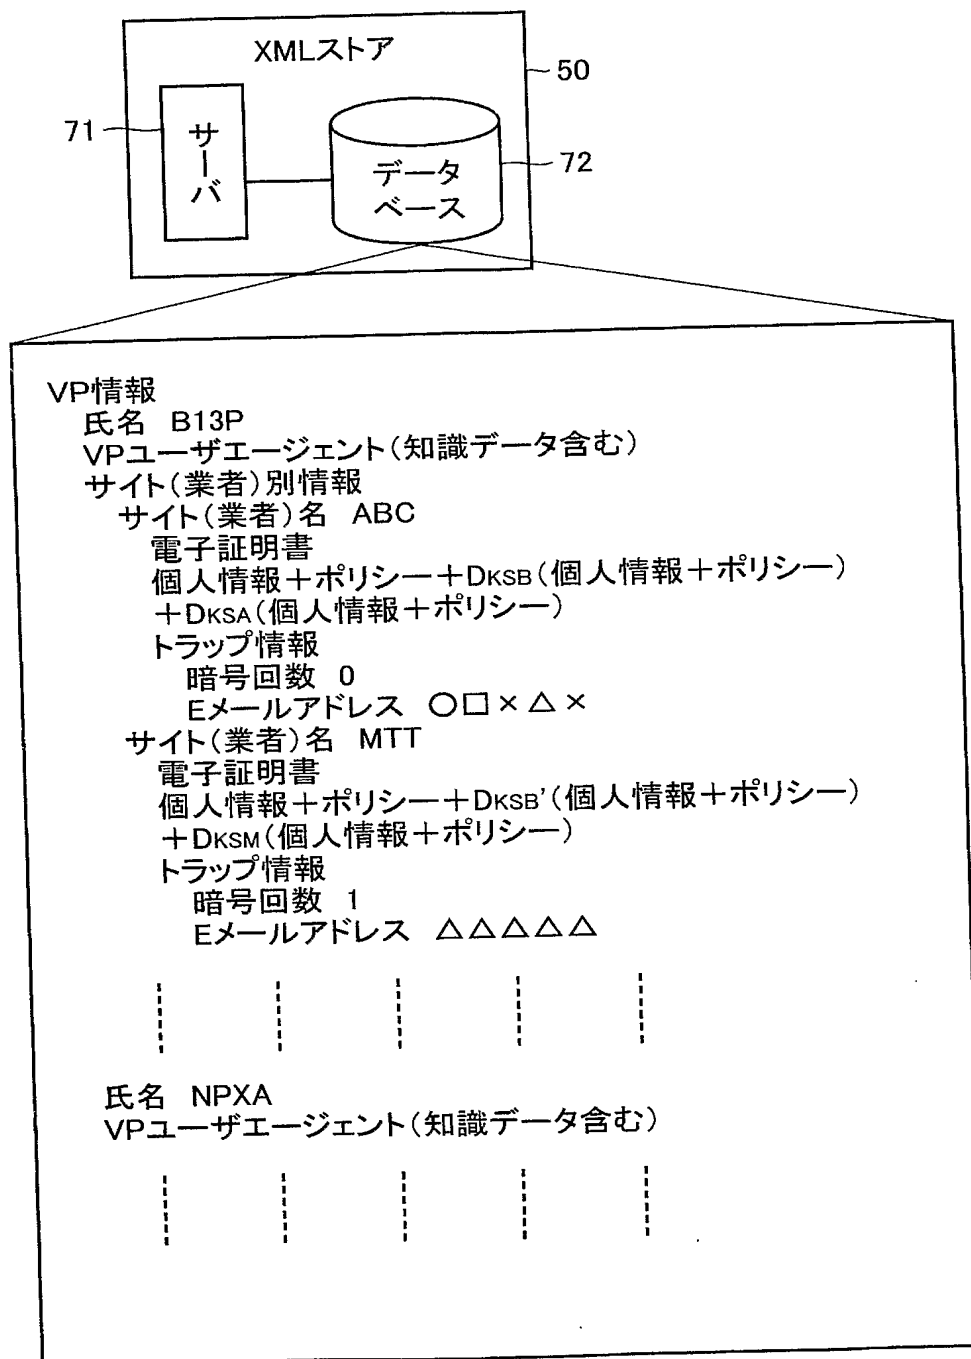 XMLストア
50
71
サーバ
データ
ベース
72
VP情報
氏名 B13P
VPユーザエージェント(知識データ含む)
サイト(業者)別情報
サイト(業者)名 ABC
電子証明書
個人情報+ポリシー+DKSB(個人情報+ポリシー)
+DKSA(個人情報+ポリシー)
トラップ情報
暗号回数 0
Eメールアドレス ○□×△×
サイト(業者)名 MTT
電子証明書
個人情報+ポリシー+DKSB'(個人情報+ポリシー)
+DKSM(個人情報+ポリシー)
トラップ情報
暗号回数 1
Eメールアドレス △△△△△
氏名 NPXA
VPユーザエージェント(知識データ含む)